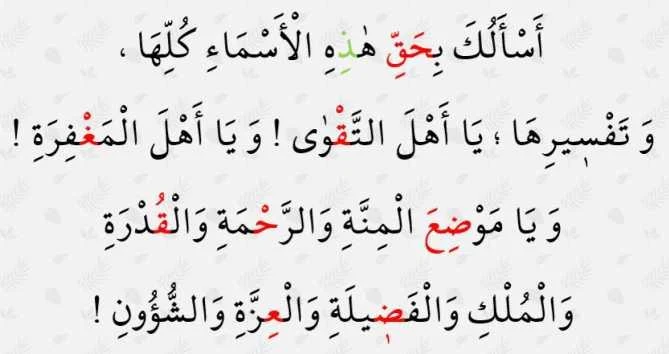 أَسْأَلُكَ بِحَقِّ هٰذِهِ الْأَسْمَاءِ كُلِّهَا ،
وَ تَفْسِيرِهَا ؛ يَا أَهْلَ التَّقْوٰى ! وَ يَا أَهْلَ الْمَغْفِرَةِ !
وَ يَا مَوْضِعَ الْمِنَّةِ وَالرَّحْمَةِ وَالْقُدْرَةِ
وَالْمُلْكِ وَالْفَضِيلَةِ وَالْعِزَّةِ وَالشُّؤُونِ !